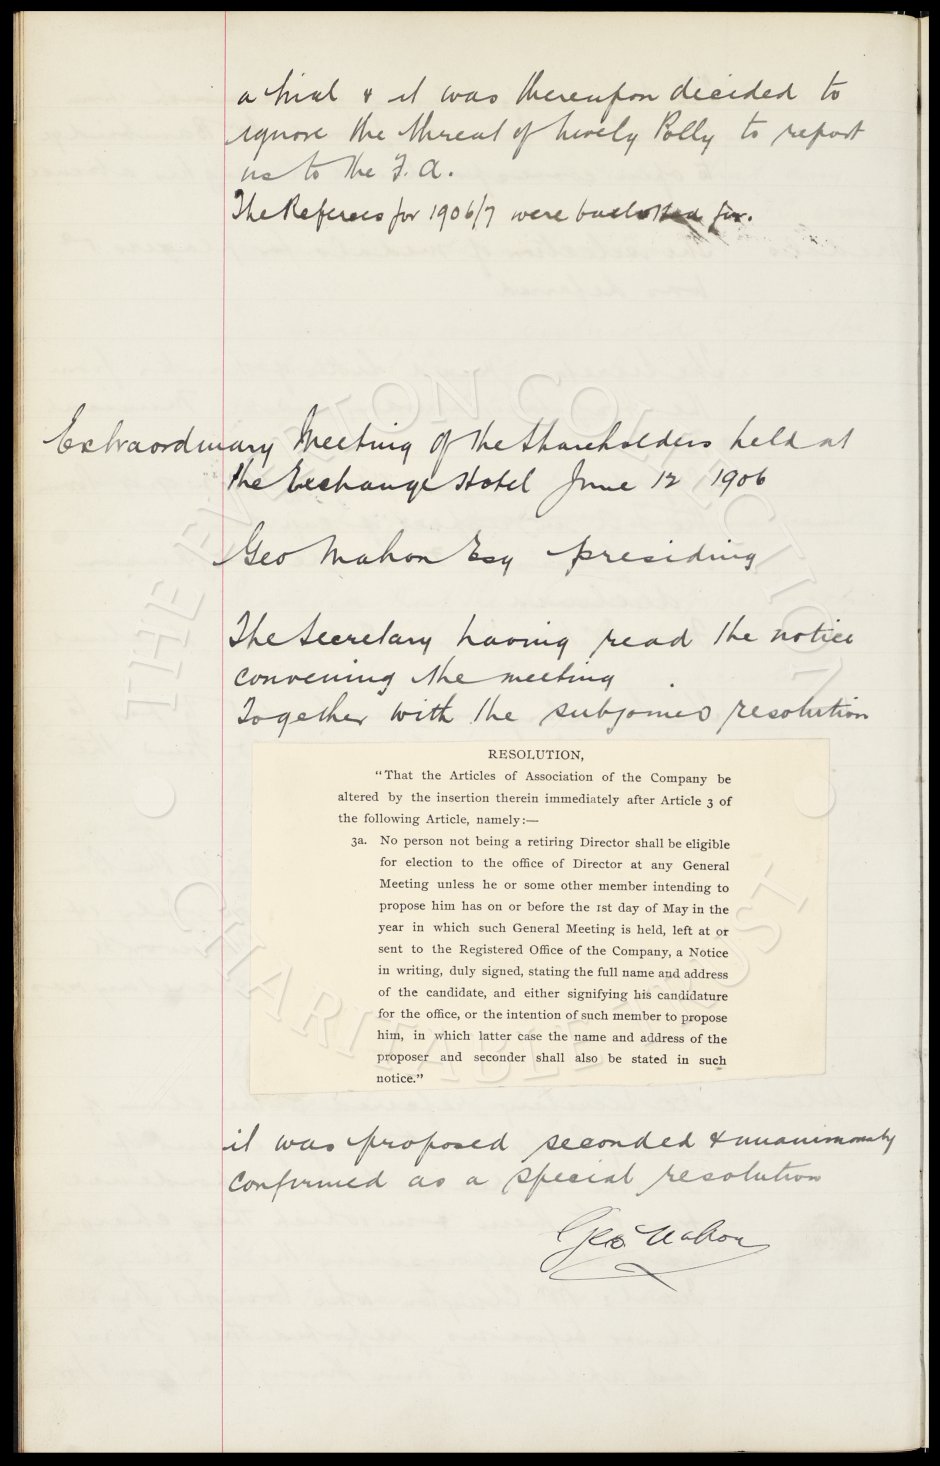 a trial & it was thereupon decided to
ignore the threat of Lively Polly to report
us to the F. A.
The Referees for 1906/7 were balloted for.
Extraordinary Meeting of the Shareholders held at
the Exchange Hotel June 12 1906
Geo Mahon Esq presiding
The Secretary having read the notice
convening the meeting
Together with the subjoined resolution
RESOLUTION,
"That the Articles of Association of the Company be
altered by the insertion therein immediately after Article 3 of
the following Article, namely:—
3a. No person not being a retiring Director shall be eligible
for election to the office of Director at any General
Meeting unless he or some other member intending to
propose him has on or before the 1st day of May in the
year in which such General Meeting is held, left at or
sent to the Registered Office of the Company, a Notice
in writing, duly signed, stating the full name and address
of the candidate, and either signifying his candidature
for the office, or the intention of such member to propose
him, in which latter case the name and address of the
proposer and seconder shall also be stated in such
notice."
it was proposed seconded & unanimously
confirmed as a special resolution
Geo Mahon
THE EVERTON COLLECTION
CHARITABLE TRUST